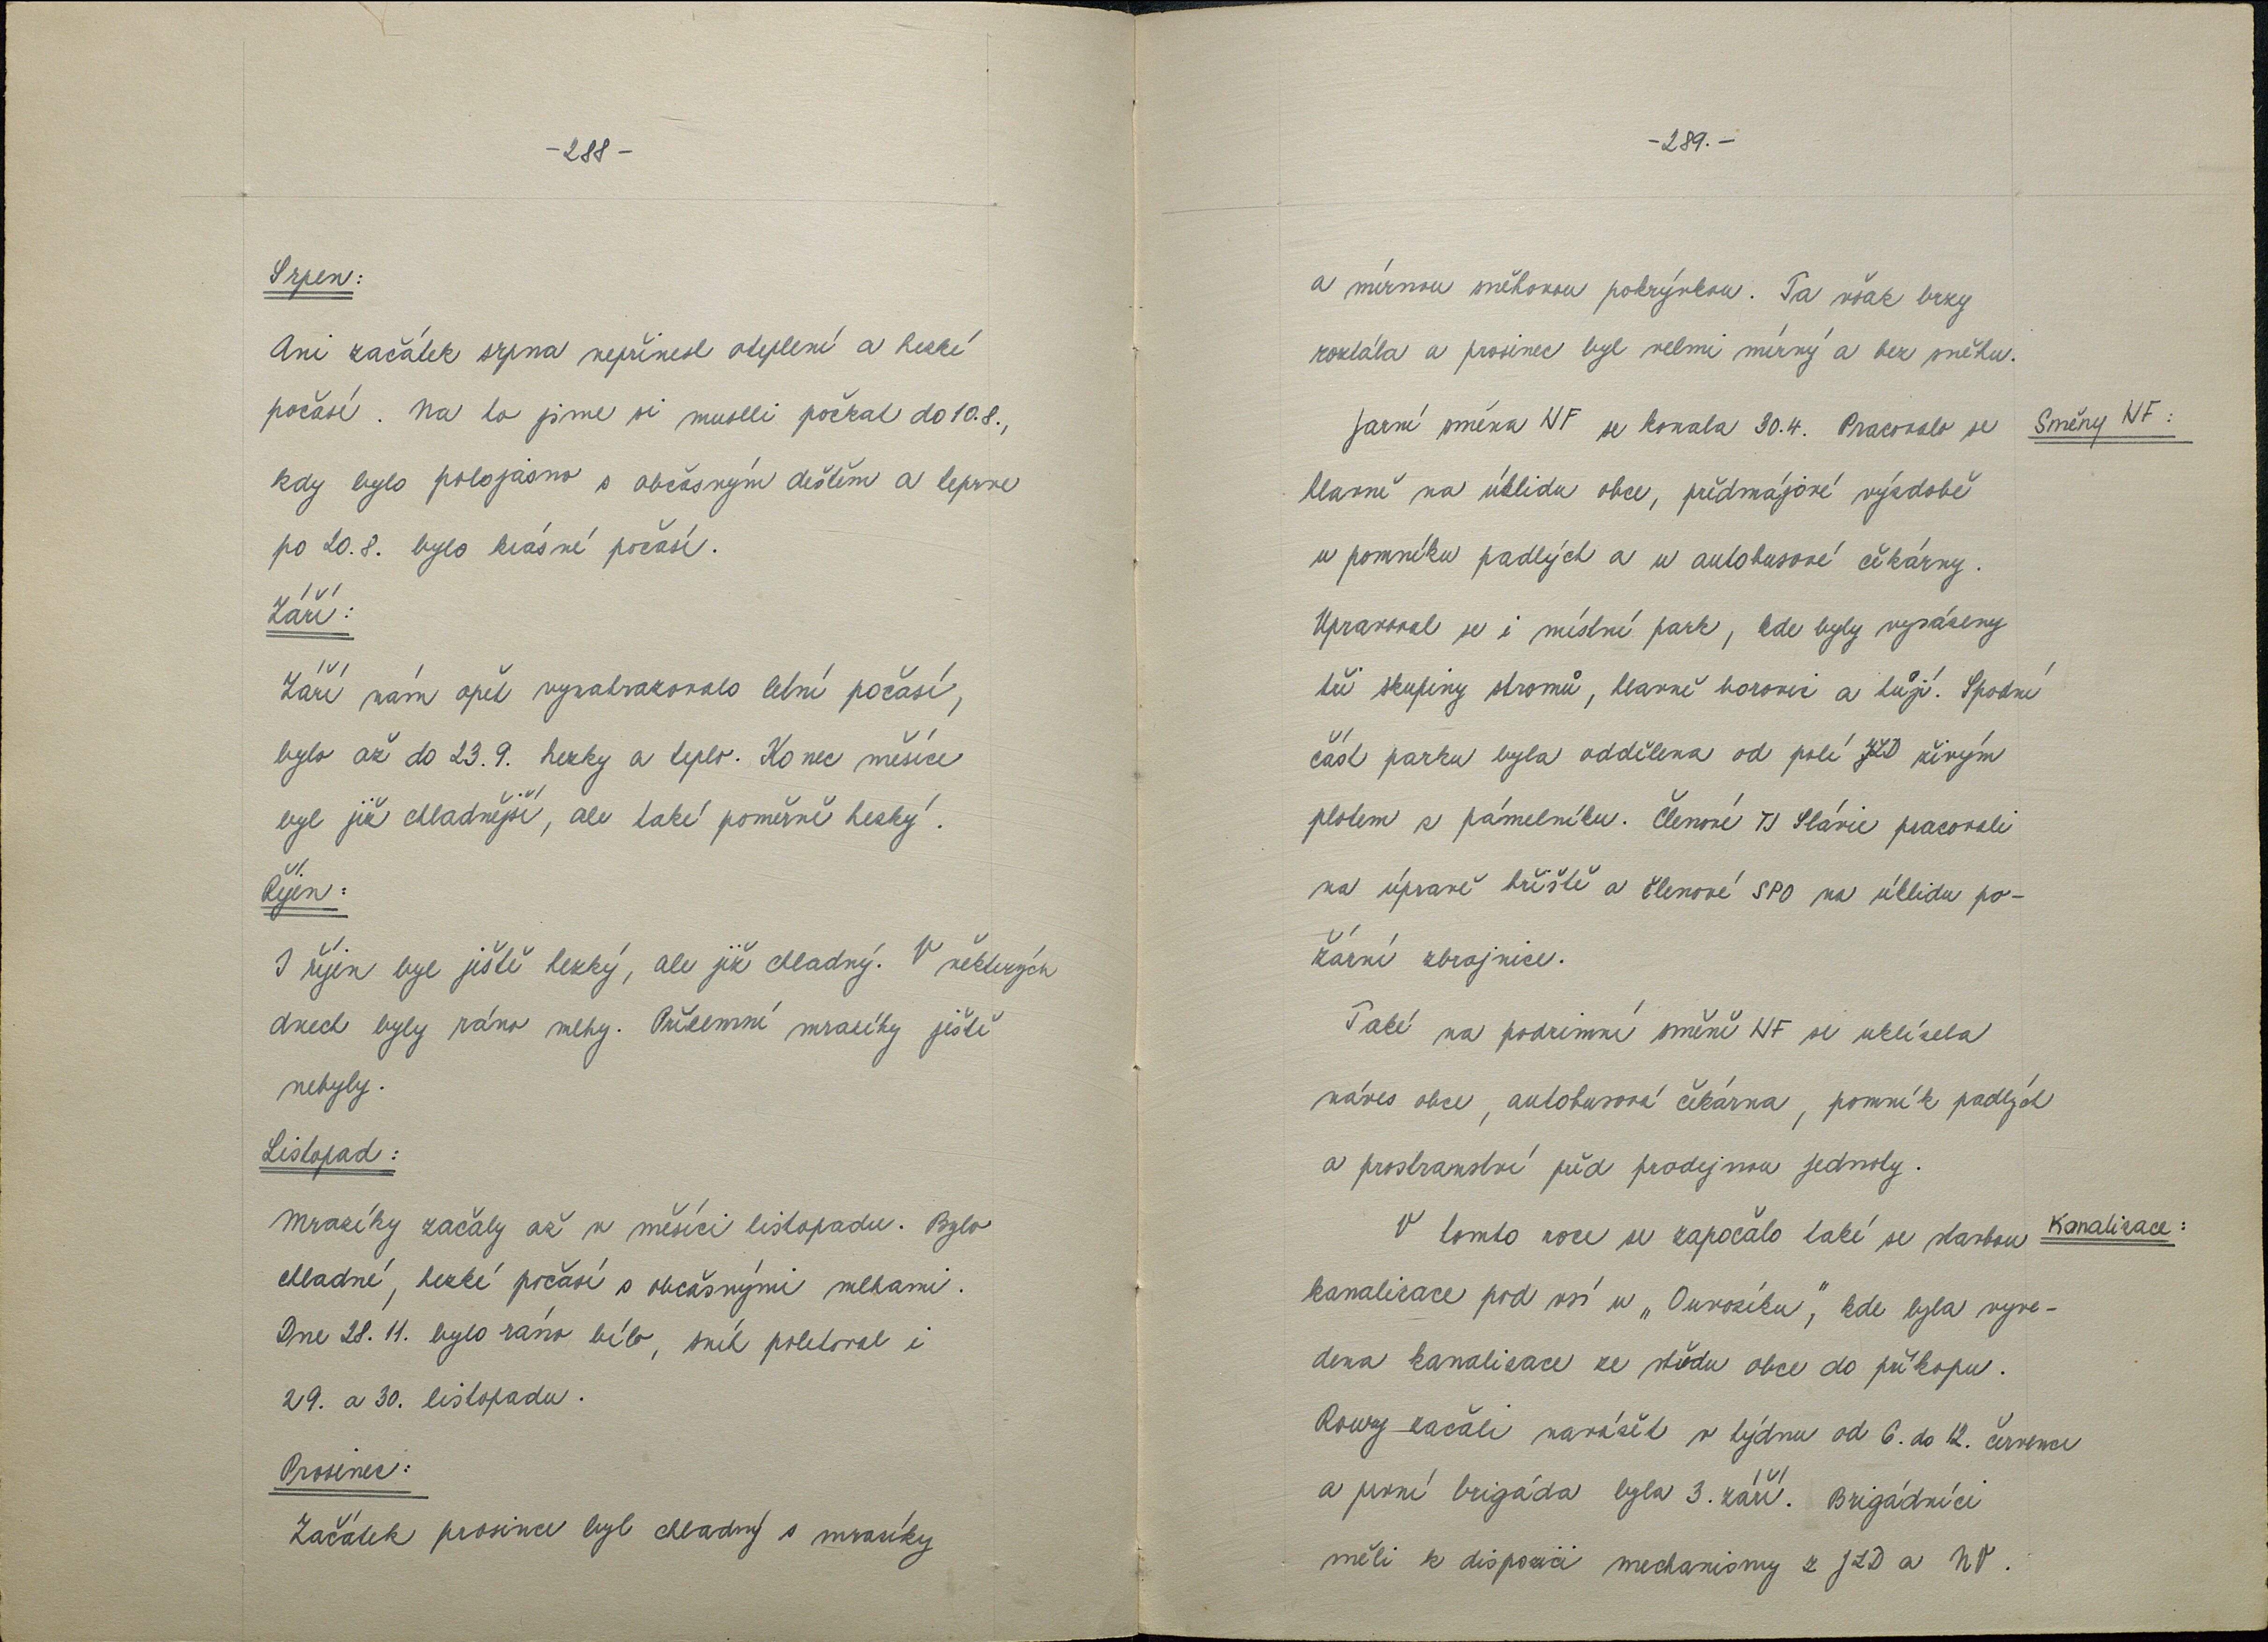 -288-
Srpen:
Ani začátek srpna nepřinesl oteplení a hezké
počasí. Na to jsme si museli počkat do 10.8.,
kdy bylo polojasno s občasným deštěm a teprve
po 20.8. bylo krásné počasí.
Září:
Září nám opět vynahrazovalo letní počasí,
bylo až do 23.9. hezky a teplo. Konec měsíce
byl již chladnější, ale také poměrně hezký.
Říjen:
I říjen byl ještě hezký, ale již chladný. V některých
dnech byly ráno mlhy. Přízemní mrazíky ještě
nebyly.
Listopad:
Mrazíky začaly až v měsíci listopadu. Bylo
chladné, hezké počasí s občasnými mlhami.
Dne 28. 11. bylo ráno bílo, sníh poletoval i
29. a 30. listopadu.
Prosinec:
Začátek prosince byl chladný s mrazíky
-289.-
a mírnou sněhovou pokrývkou. Ta však brzy
roztála a prosinec byl velmi mírný a bez sněhu.
Jarní směna NF se konala 30.4. Pracovalo se
Směny NF:
hlavně na úklidu obce, předmájové výzdobě
u pomníku padlých a u autobusové čekárny.
Upravoval se i místní park, kde byly vysázeny
tři skupiny stromů, hlavně borovic a tůjí. Spodní
část parku byla oddělena od polí JZD živým
plotem z pámelníku. Členové TJ Slávie pracovali
na úpravě hřiště a členové SPO na úklidu po-
žární zbrojnice.
Také na podzimní směně NF se uklízela
náves obce, autobusová čekárna, pomník padlých
a prostranství před prodejnou Jednoty.
V tomto roce se započalo také se stavbou
Kanalizace:
kanalizace pod vsí u „Ouvozíku", kde byla vyve-
dena kanalizace ze středu obce do příkopu.
Roury začali navážet v týdnu od 6. do 12. července
a první brigáda byla 3. září. Brigádníci
měli k dispozici mechanismy z JZD a NV.